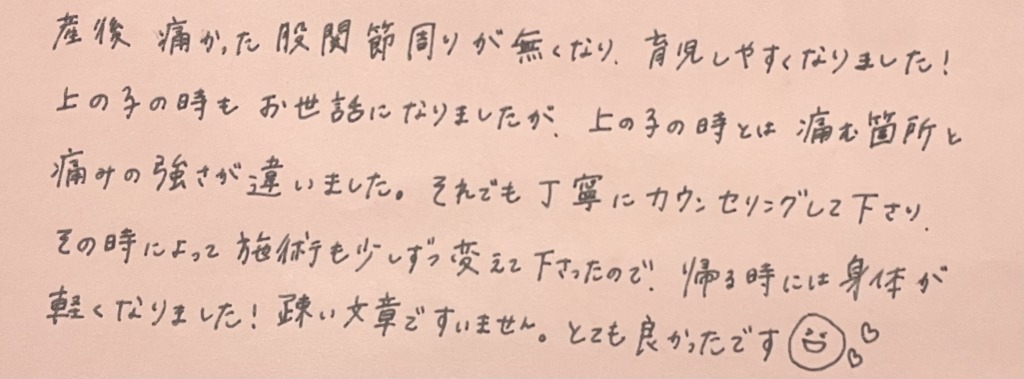 産後 痛かった 股関節周りが無くなり、育児しやすくなりました!
上の子の時も お世話になりましたが、上の子の時とは 痛む箇所と
痛みの強さが違いました。それでも丁寧にカウンセリングして下さり、
その時によって 施術も少しずつ変えて下さったので、帰る時には身体が
軽くなりました! 疎い文章ですいません。とても良かったです